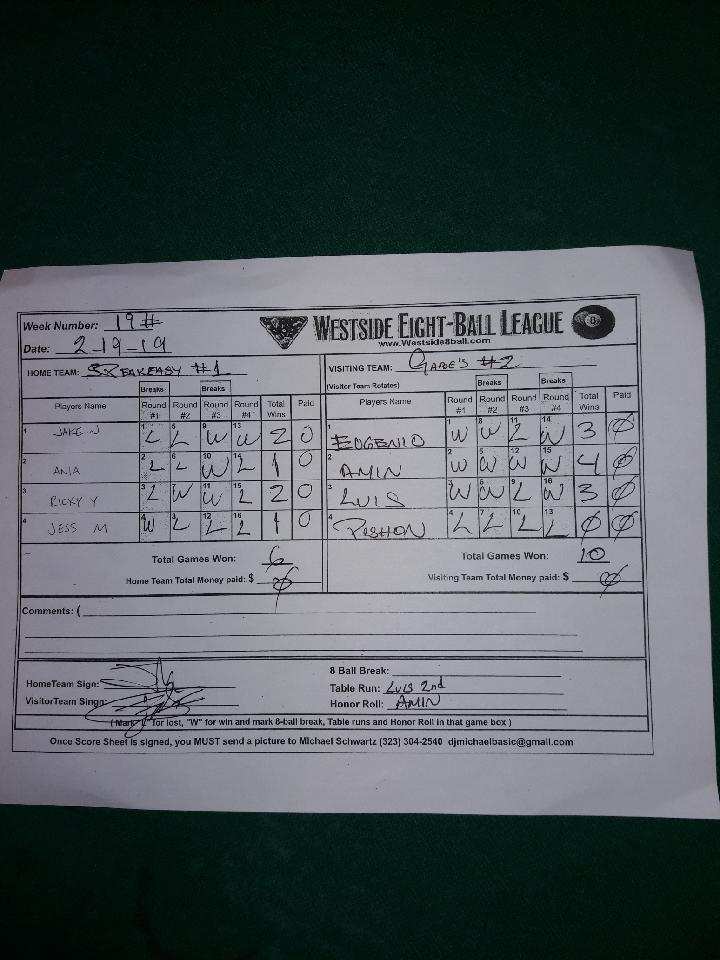 Week Number: 19#
WESTSIDE EIGHT-BALL LEAGUE
www.Westside8ball.com
Date: 2-19-19
HOME TEAM: SPEAKEASY #1 VISITING TEAM: GABE'S #2
(Visitor Team Rotates)
Breaks Breaks Breaks Breaks
Players Name Round #1 Round #2 Round #3 Round #4 Total Wins Paid Players Name Round #1 Round #2 Round #3 Round #4 Total Wins Paid
1 JAKE N 1 L 5 L 9 W 13 W 2 0 1 EUGENIO 1 W 8 W 11 L 14 W 3 Ø
2 ANIA 2 L 6 L 10 W 14 L 1 0 2 AMIN 2 W 5 W 12 W 15 W 4 Ø
3 RICKY Y 3 L 7 W 11 W 15 L 2 0 3 LUIS 3 W 6 W 9 L 16 W 3 Ø
4 JESS M 4 W 8 L 12 L 16 L 1 0 4 PESHON 4 L 7 L 10 L 13 L Ø Ø
Total Games Won: 6 Total Games Won: 10
Home Team Total Money paid: $ Ø Visiting Team Total Money paid: $ Ø
Comments: (
8 Ball Break:
HomeTeam Sign: Table Run: LUIS 2nd
VisitorTeam Singn: Honor Roll: AMIN
( Mark "L" for lost, "W" for win and mark 8-ball break, Table runs and Honor Roll in that game box )
Once Score Sheet is signed, you MUST send a picture to Michael Schwartz (323) 304-2540 djmichaelbasic@gmail.com